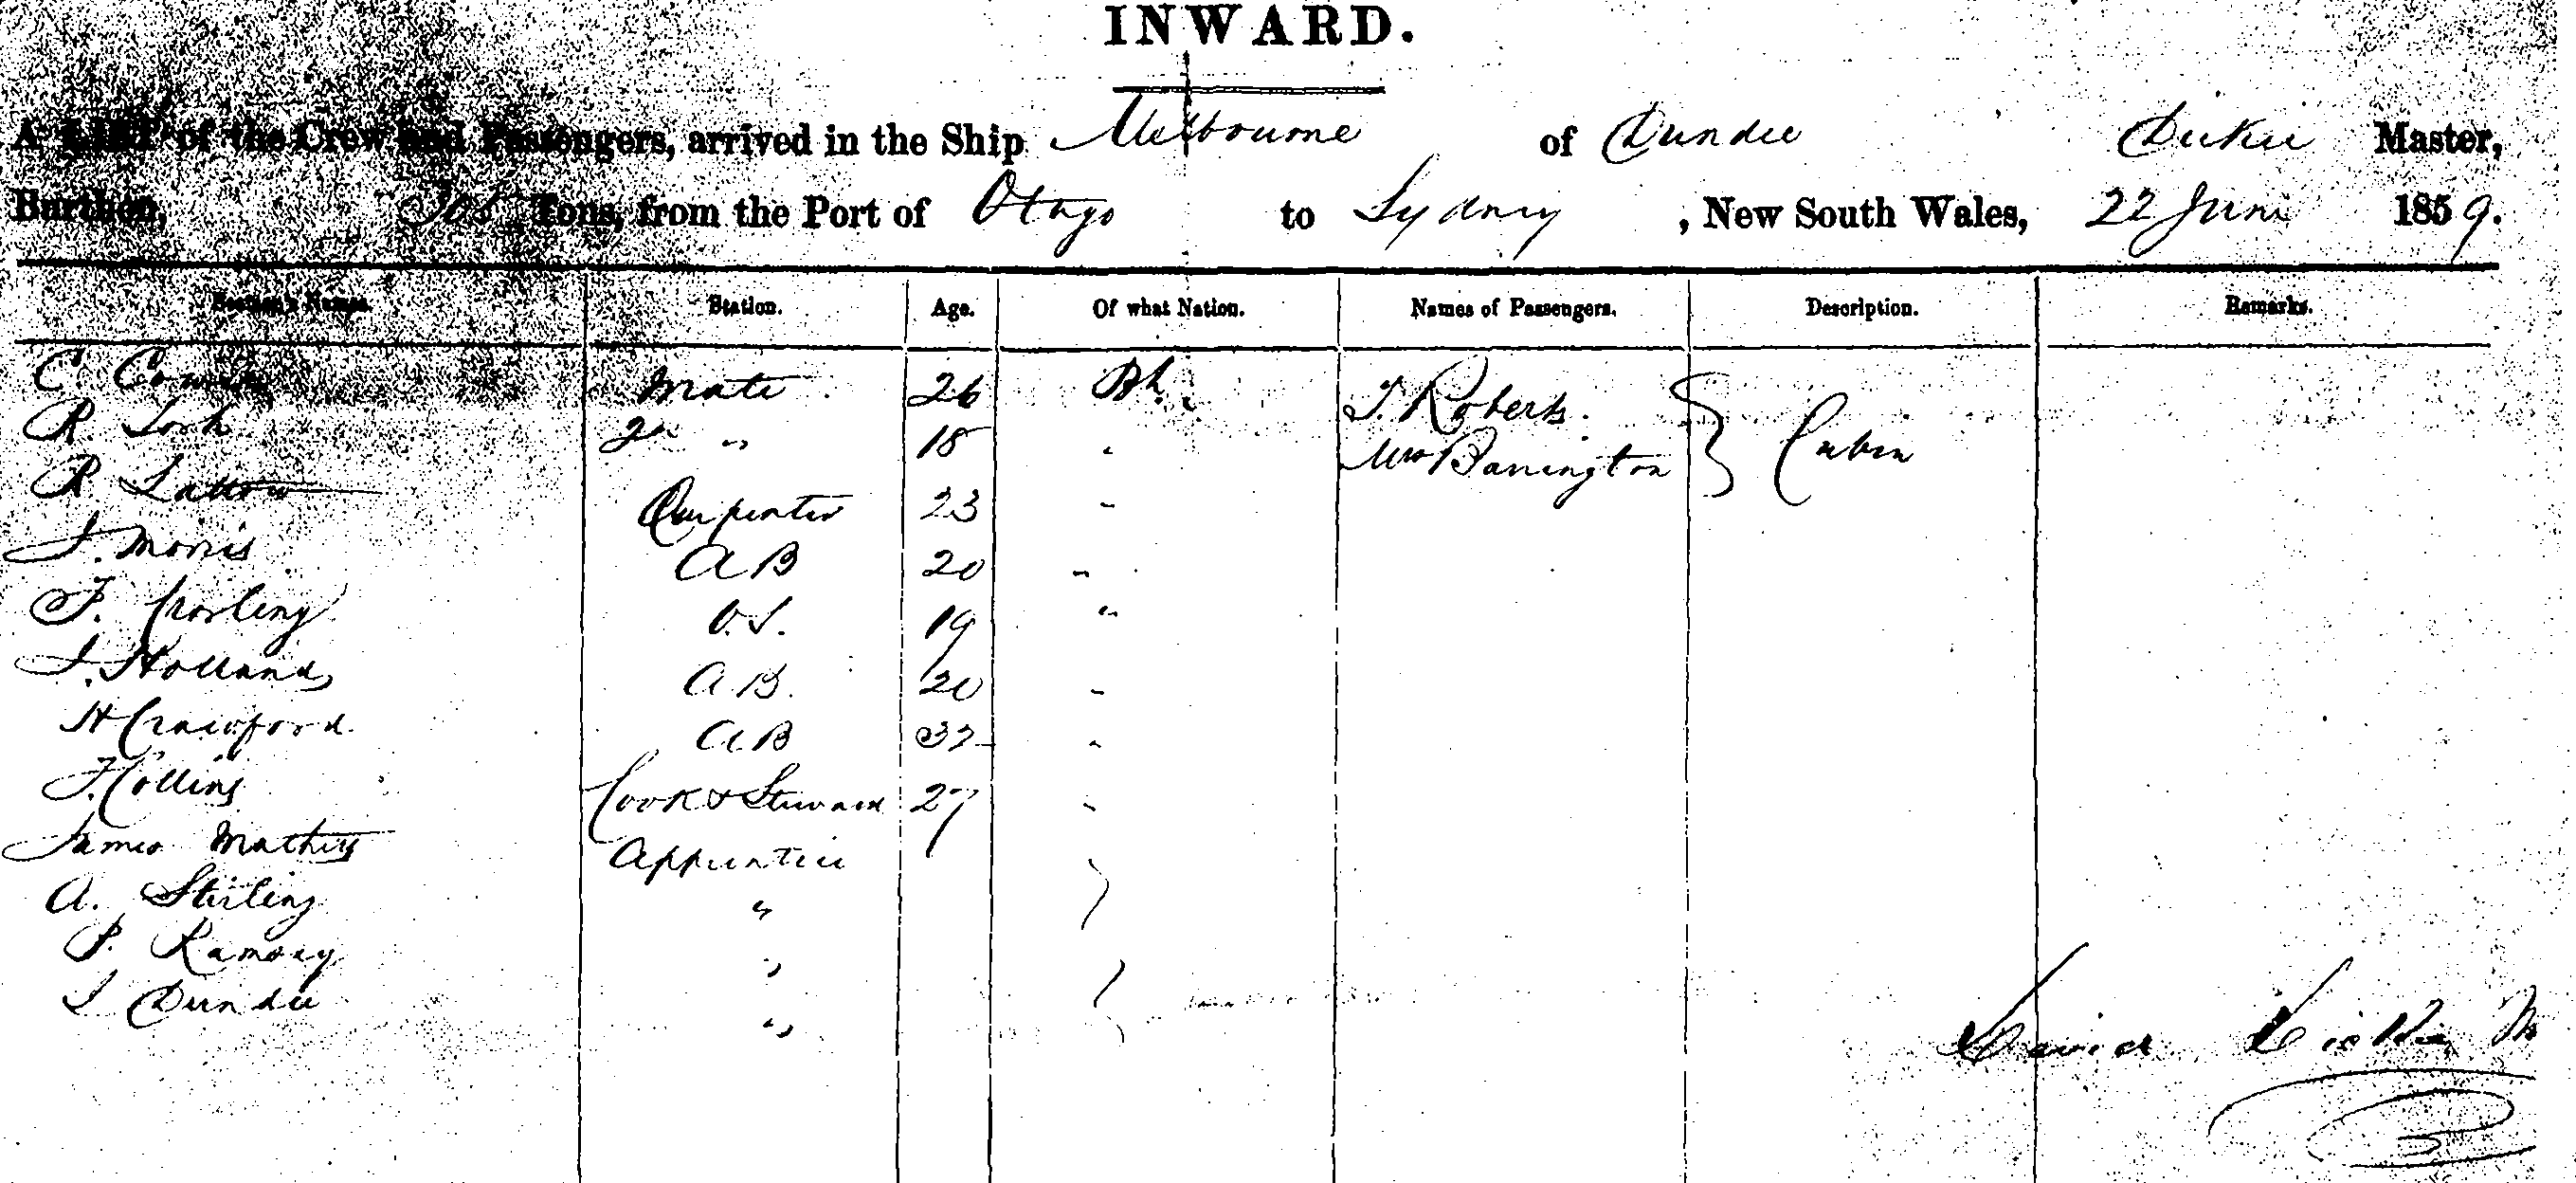 INWARD.
A LIST of the Crew and Passengers, arrived in the Ship Melbourne of Dundee Dickie Master,
Burthen, Tons, from the Port of Otago to Sydney, New South Wales, 22 June 1859.
Station. Age. Of what Nation. Names of Passengers. Description. Remarks.
C Mate 26 Bh. T. Roberts. Cabin
R 2d " 18 " Mrs Barrington
R Carpenter 23 "
J. Morris AB 20 "
F. O.S. 19 "
J. Holland A.B. 20 "
H Crawford AB 32 "
J. Collins Cook & Steward 27 "
James Mathers Apprentice
A. Stirling "
P. Ramsey "
J Dundee "
David Dickie M